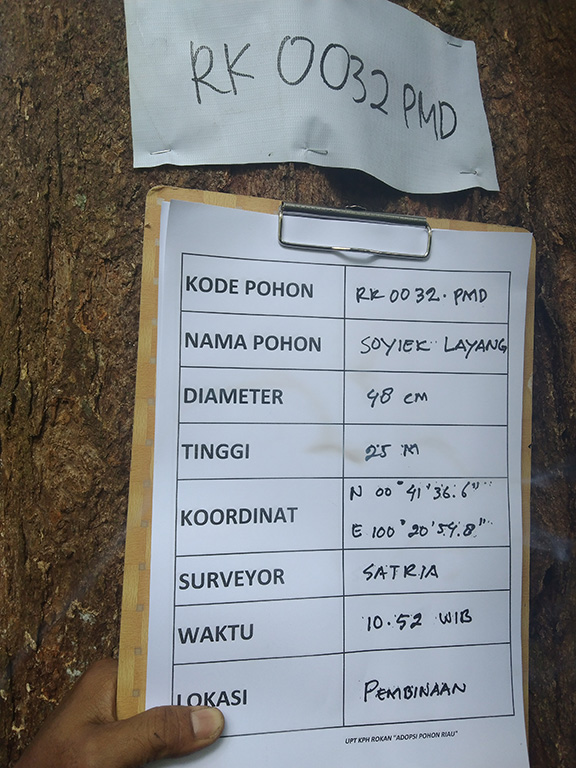 RK 0032 PMD
KODE POHON RK 0032. PMD
NAMA POHON SOYIEK LAYANG
DIAMETER 48 cm
TINGGI 25 M
KOORDINAT N 00° 41' 36.6"
E 100° 20' 54.8"
SURVEYOR SATRIA
WAKTU 10.52 WIB
LOKASI PEMBINAAN
UPT KPH ROKAN "ADOPSI POHON RIAU"